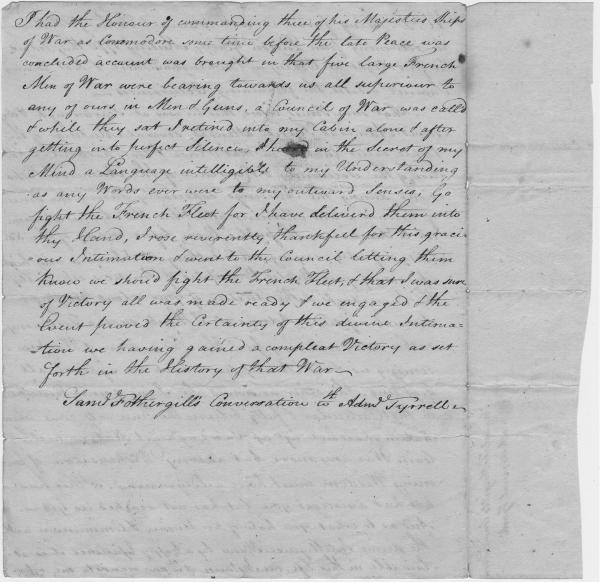 I had the Honour of commanding three of his Majesties Ships
of War as Commodore some time before the late Peace was
concluded account was brought in that five large French
Men of War were bearing towards us all superiour to
any of ours in Men & Guns, a Council of War was call'd
& while they sat I retired into my Cabin alone & after
getting into perfect Silence, I heard in the Secret of my
Mind a Language intelligible to my Understanding
as any Words ever were to my outward Senses, Go
fight the French Fleet for I have deliverd them into
thy Hand, I rose reverently thankfull for this graci-
=ous Intimation & went to the Council letting them
know we should fight the French Fleet, & that I was sure
of Victory all was made ready & we engaged & the
Event proved the Certainty of this divine Intima-
=tion we having gained a compleat Victory as set
forth in the History of that War
Saml Fothergill's Conversation wth Adml Tyrrell